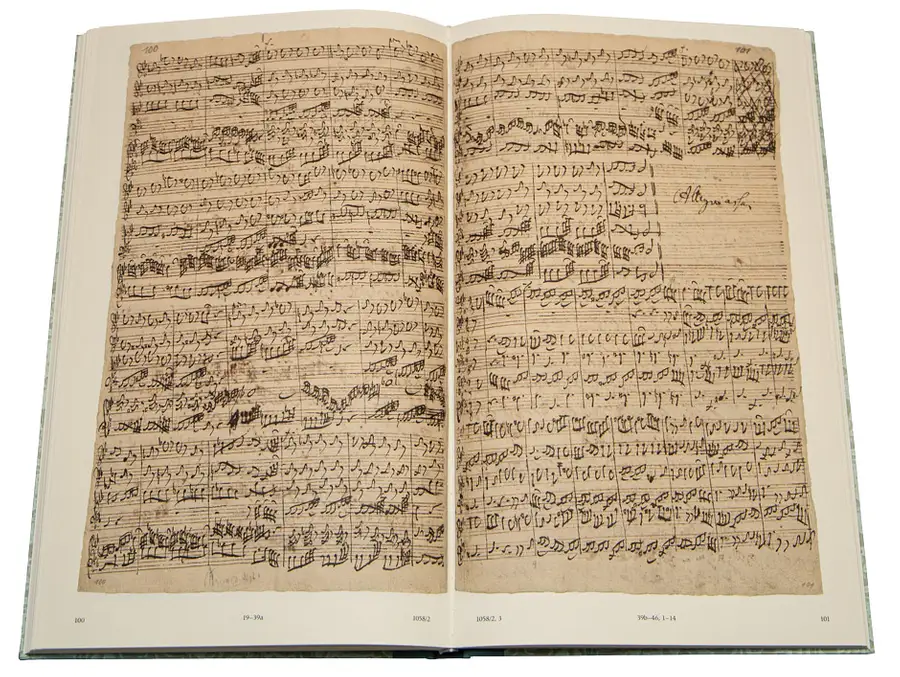 100
101
Allegro assai
100
19–39a
1058/2
1058/2, 3
39b–46; 1–14
101